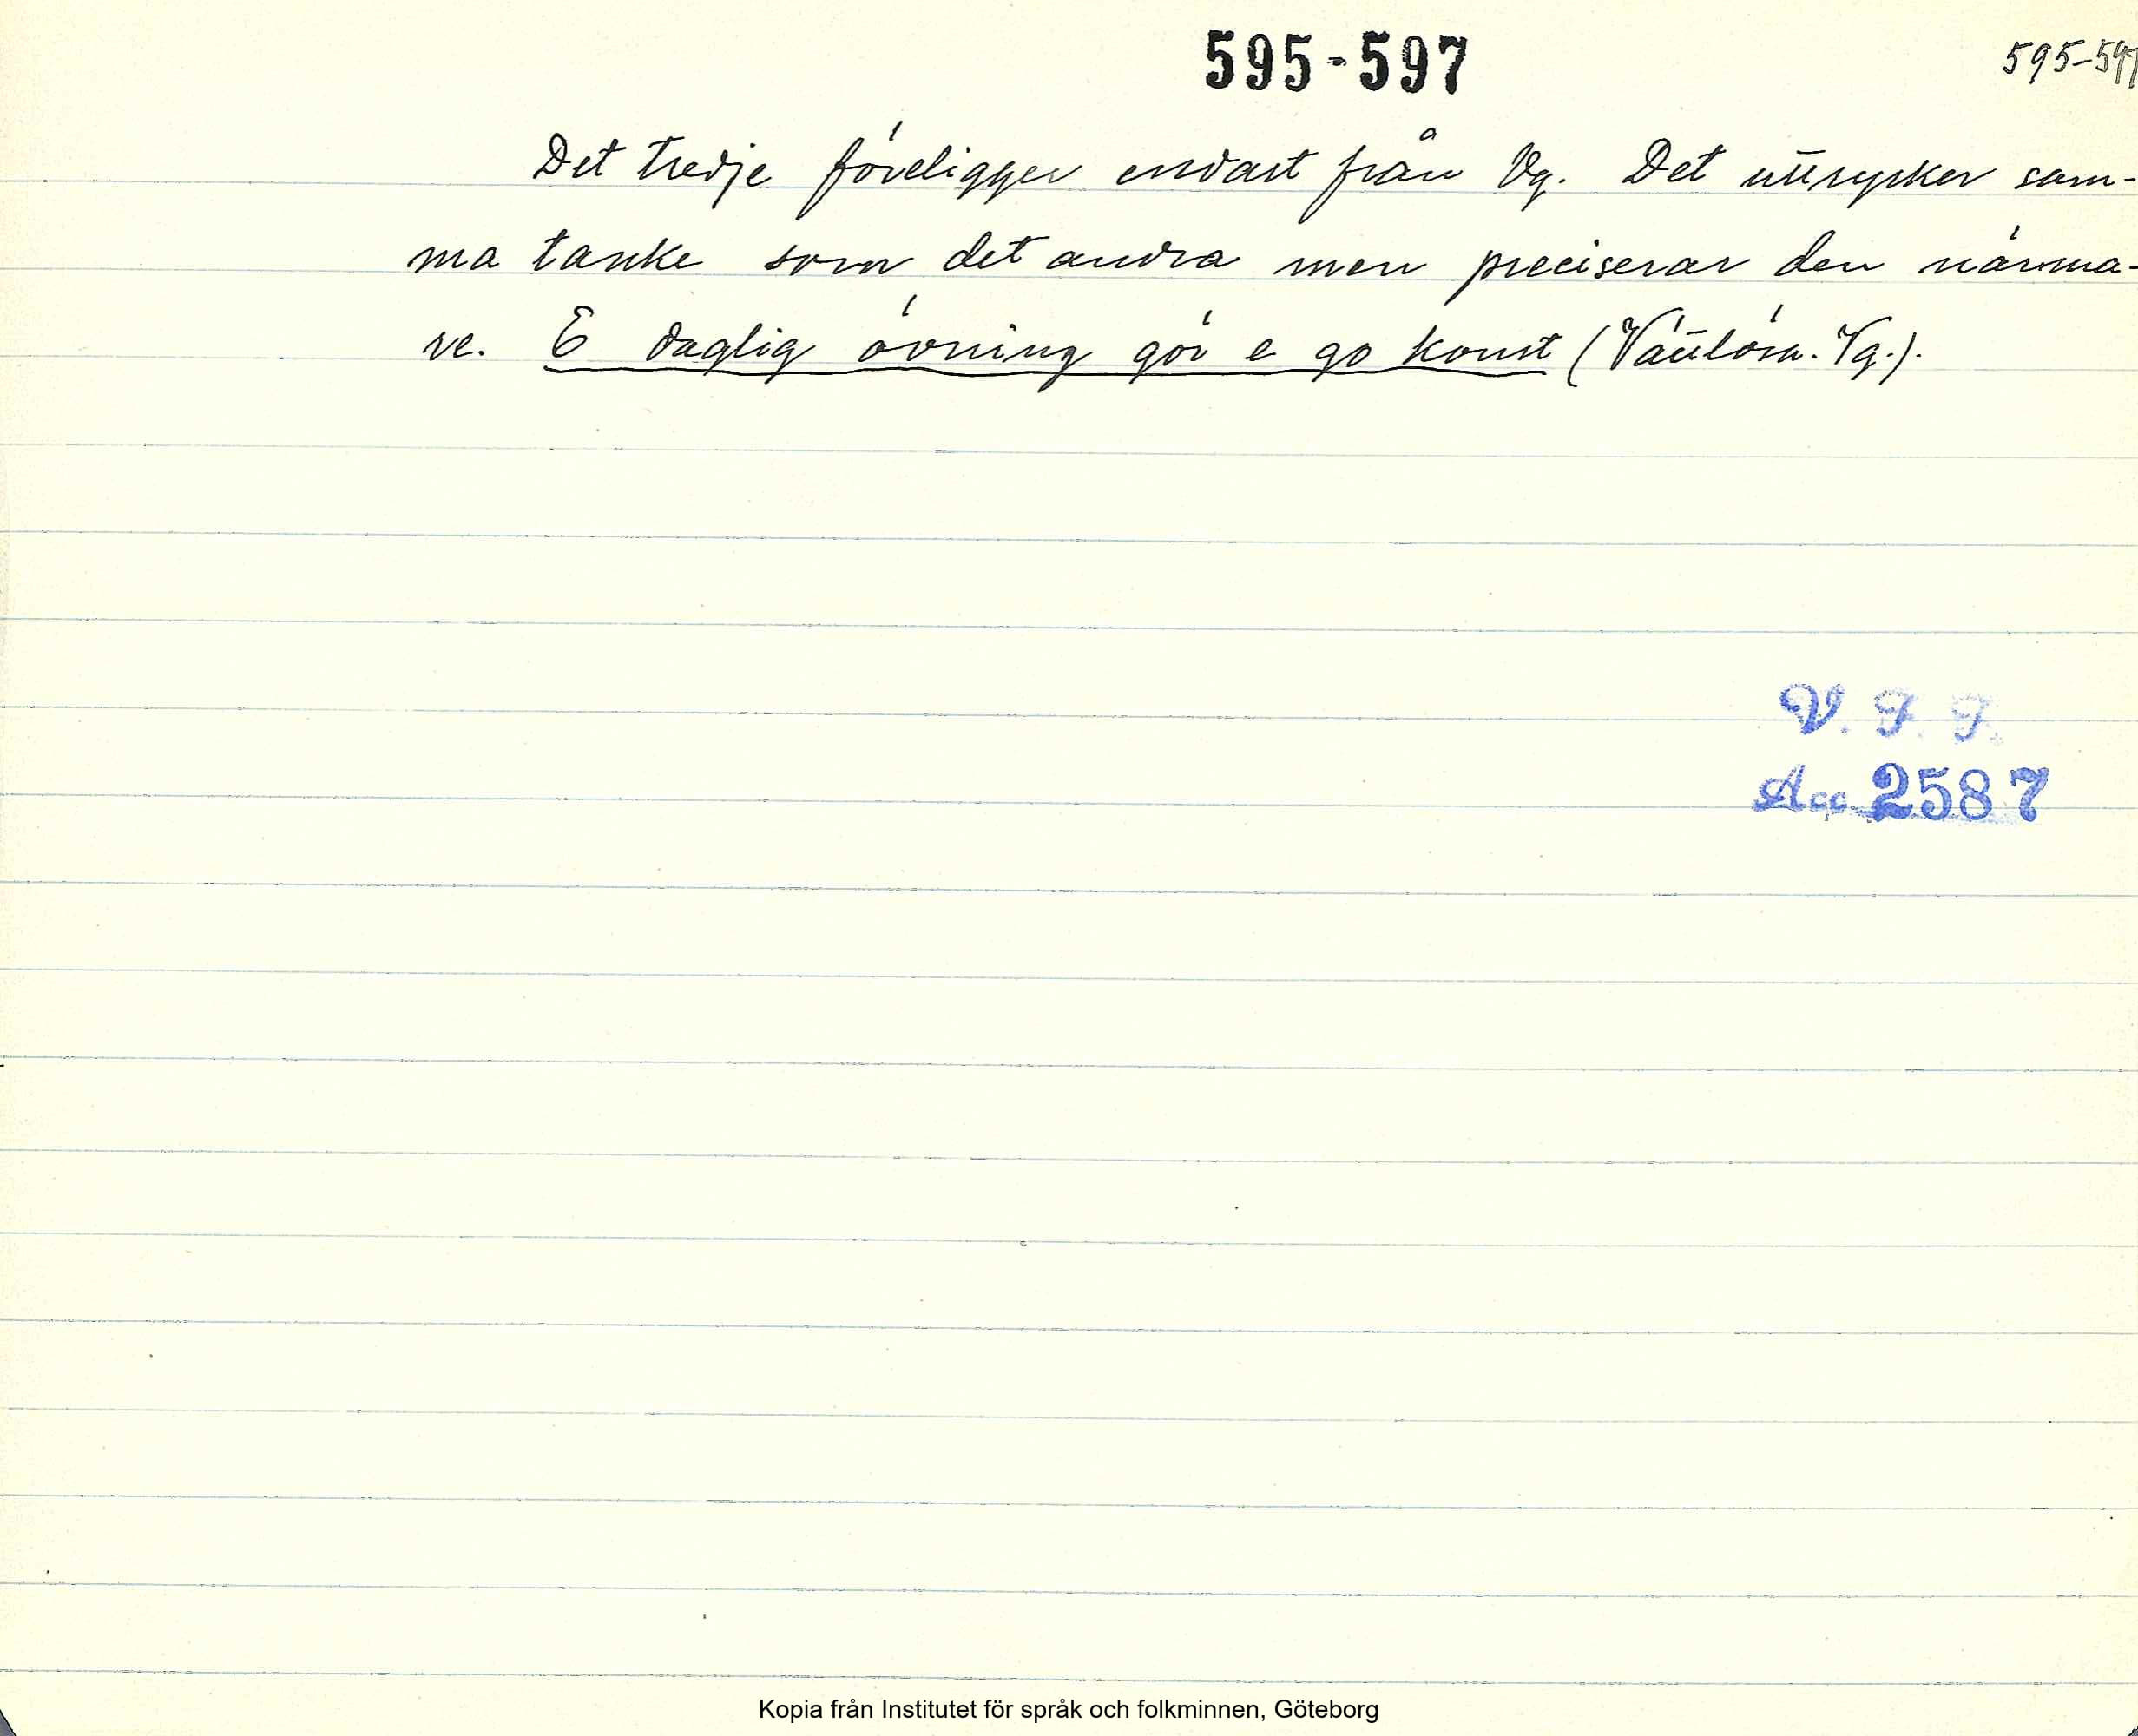 595-597
595-597
Det tredje föreligger endast från Vg. Det uttrycker sam-
ma tanke som det andra men preciserar den närma-
re. E daglig övning gör e go konst (Vätlösa. Vg.).
V. F. F.
Acc. 2587
Kopia från Institutet för språk och folkminnen, Göteborg